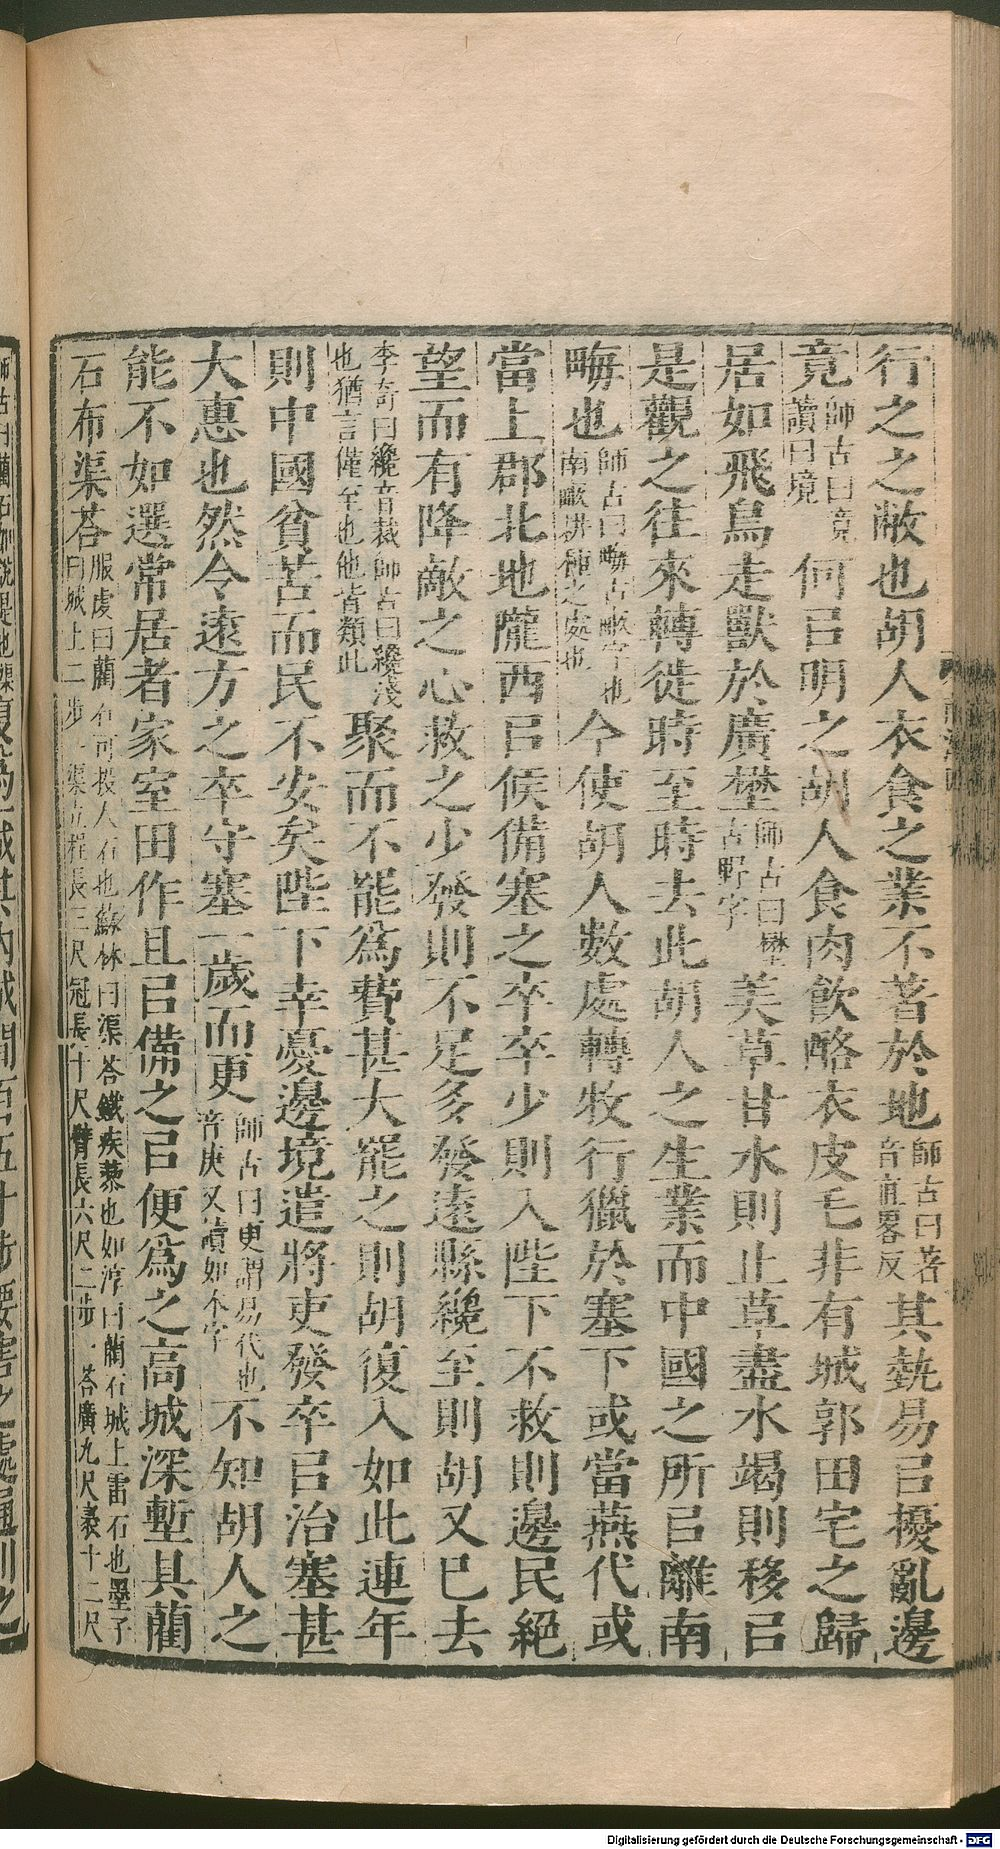 行之之敝也胡人衣食之業不著於地師古曰著音直畧反其埶易㠯擾亂邊
竟師古曰竟讀曰境何㠯明之胡人食肉飲酪衣皮毛非有城郭田宅之歸
居如飛鳥走獸於廣壄師古曰壄古野字美草甘水則止草盡水竭則移㠯
是觀之往來轉徙時至時去此胡人之生業而中國之所㠯離南
畮也師古曰畮古畝字也南畝耕種之處也今使胡人數處轉牧行獵於塞下或當燕代或
當上郡北地隴西㠯候備塞之卒卒少則入陛下不救則邊民絕
望而有降敵之心救之少發則不足多發遠縣纔至則胡又已去
李奇曰纔音裁師古曰纔淺也猶言僅至也他皆類此聚而不罷爲費甚大罷之則胡復入如此連年
則中國貧苦而民不安矣陛下幸憂邊境遣將吏發卒㠯治塞甚
大惠也然令遠方之卒守塞一歲而更師古曰更謂易代也音庚又讀如本字不知胡人之
能不如選常居者家室田作且㠯備之㠯便爲之高城深塹具藺
石布渠荅服虔曰藺石可投人石也蘇林曰渠荅鐵疾藜也如淳曰藺石城上雷石也墨子曰城上二步一渠立程長三尺冠長十尺臂長六尺二步一荅廣九尺袤十二尺
Digitalisierung gefördert durch die Deutsche Forschungsgemeinschaft - DFG